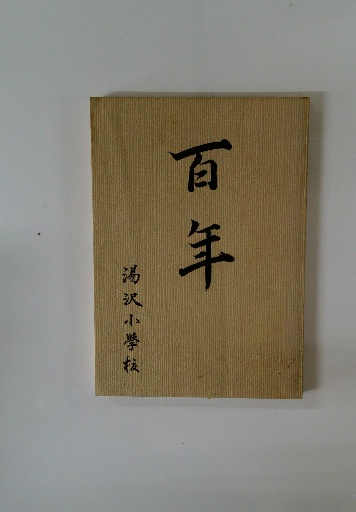 百年
湯沢小學校